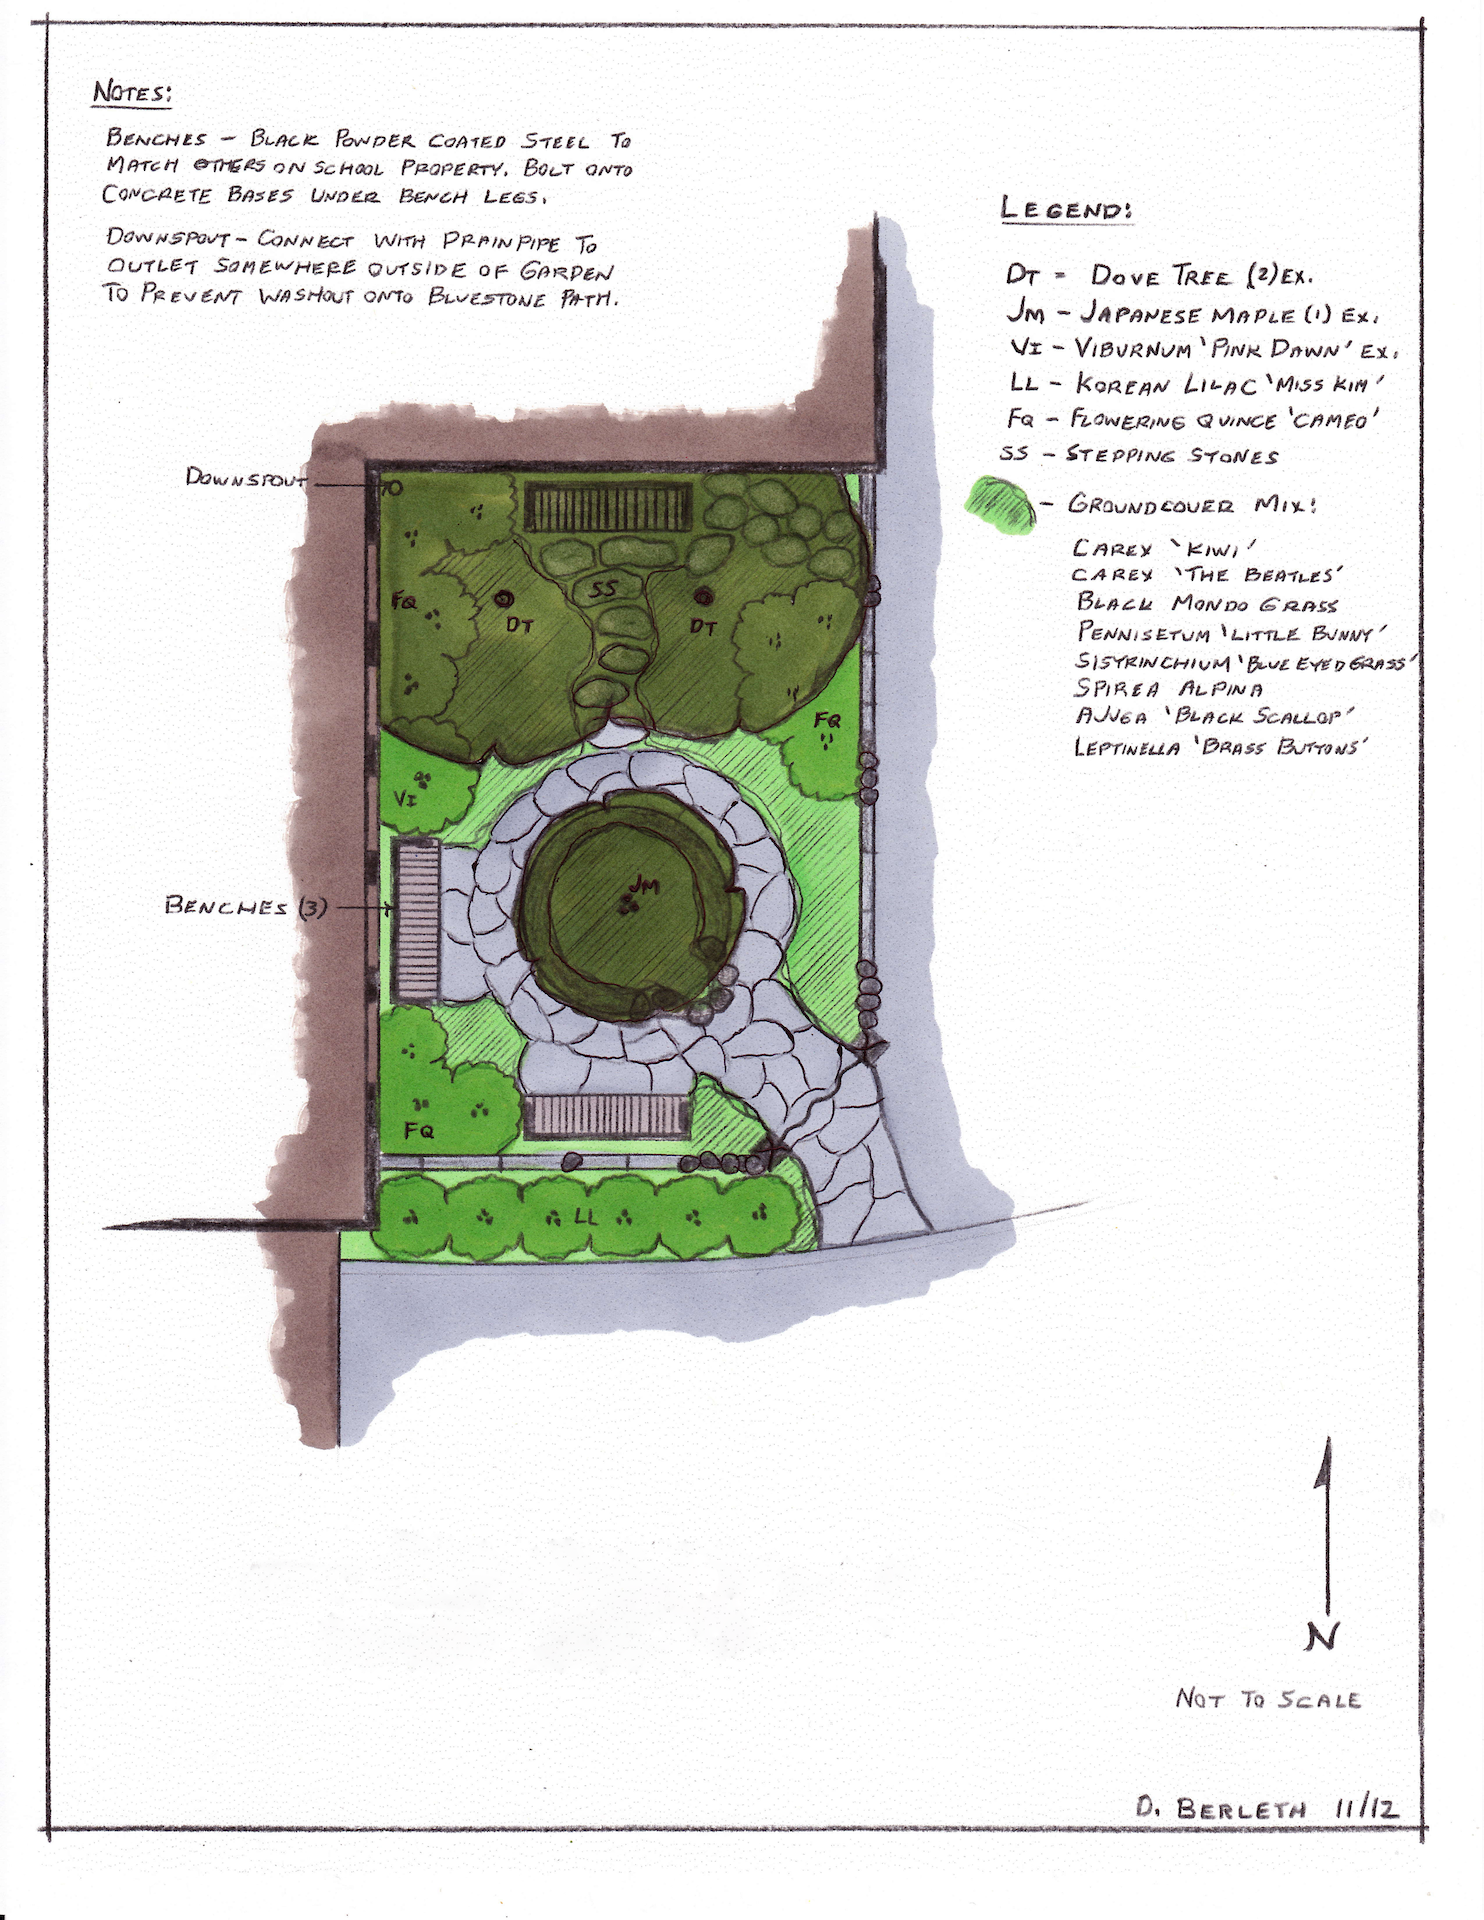 NOTES:
BENCHES – BLACK POWDER COATED STEEL TO
MATCH OTHERS ON SCHOOL PROPERTY. BOLT ONTO
CONCRETE BASES UNDER BENCH LEGS.
DOWNSPOUT – CONNECT WITH DRAINPIPE TO
OUTLET SOMEWHERE OUTSIDE OF GARDEN
TO PREVENT WASHOUT ONTO BLUESTONE PATH.
LEGEND:
DT = DOVE TREE (2) EX.
JM – JAPANESE MAPLE (1) EX.
VI – VIBURNUM 'PINK DAWN' EX.
LL – KOREAN LILAC 'MISS KIM'
FQ – FLOWERING QUINCE 'CAMEO'
SS – STEPPING STONES
– GROUNDCOVER MIX:
CAREX 'KIWI'
CAREX 'THE BEATLES'
BLACK MONDO GRASS
PENNISETUM 'LITTLE BUNNY'
SISTRINCHIUM 'BLUE EYED GRASS'
SPIREA ALPINA
AJUGA 'BLACK SCALLOP'
LEPTINELLA 'BRASS BUTTONS'
DOWNSPOUT
SS
FQ
DT
DT
FQ
VI
JM
BENCHES (3)
FQ
LL
N
NOT TO SCALE
D. BERLETH 11/12